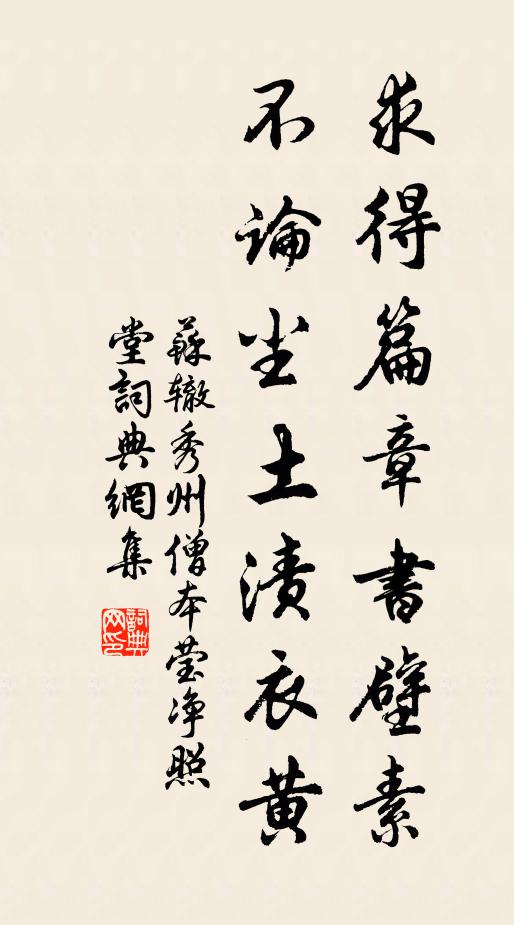 求得篇章書壁素
不論尘土漬衣黄
蘇辙秀州僧本莹净照
堂詞典網集
詞典
网印